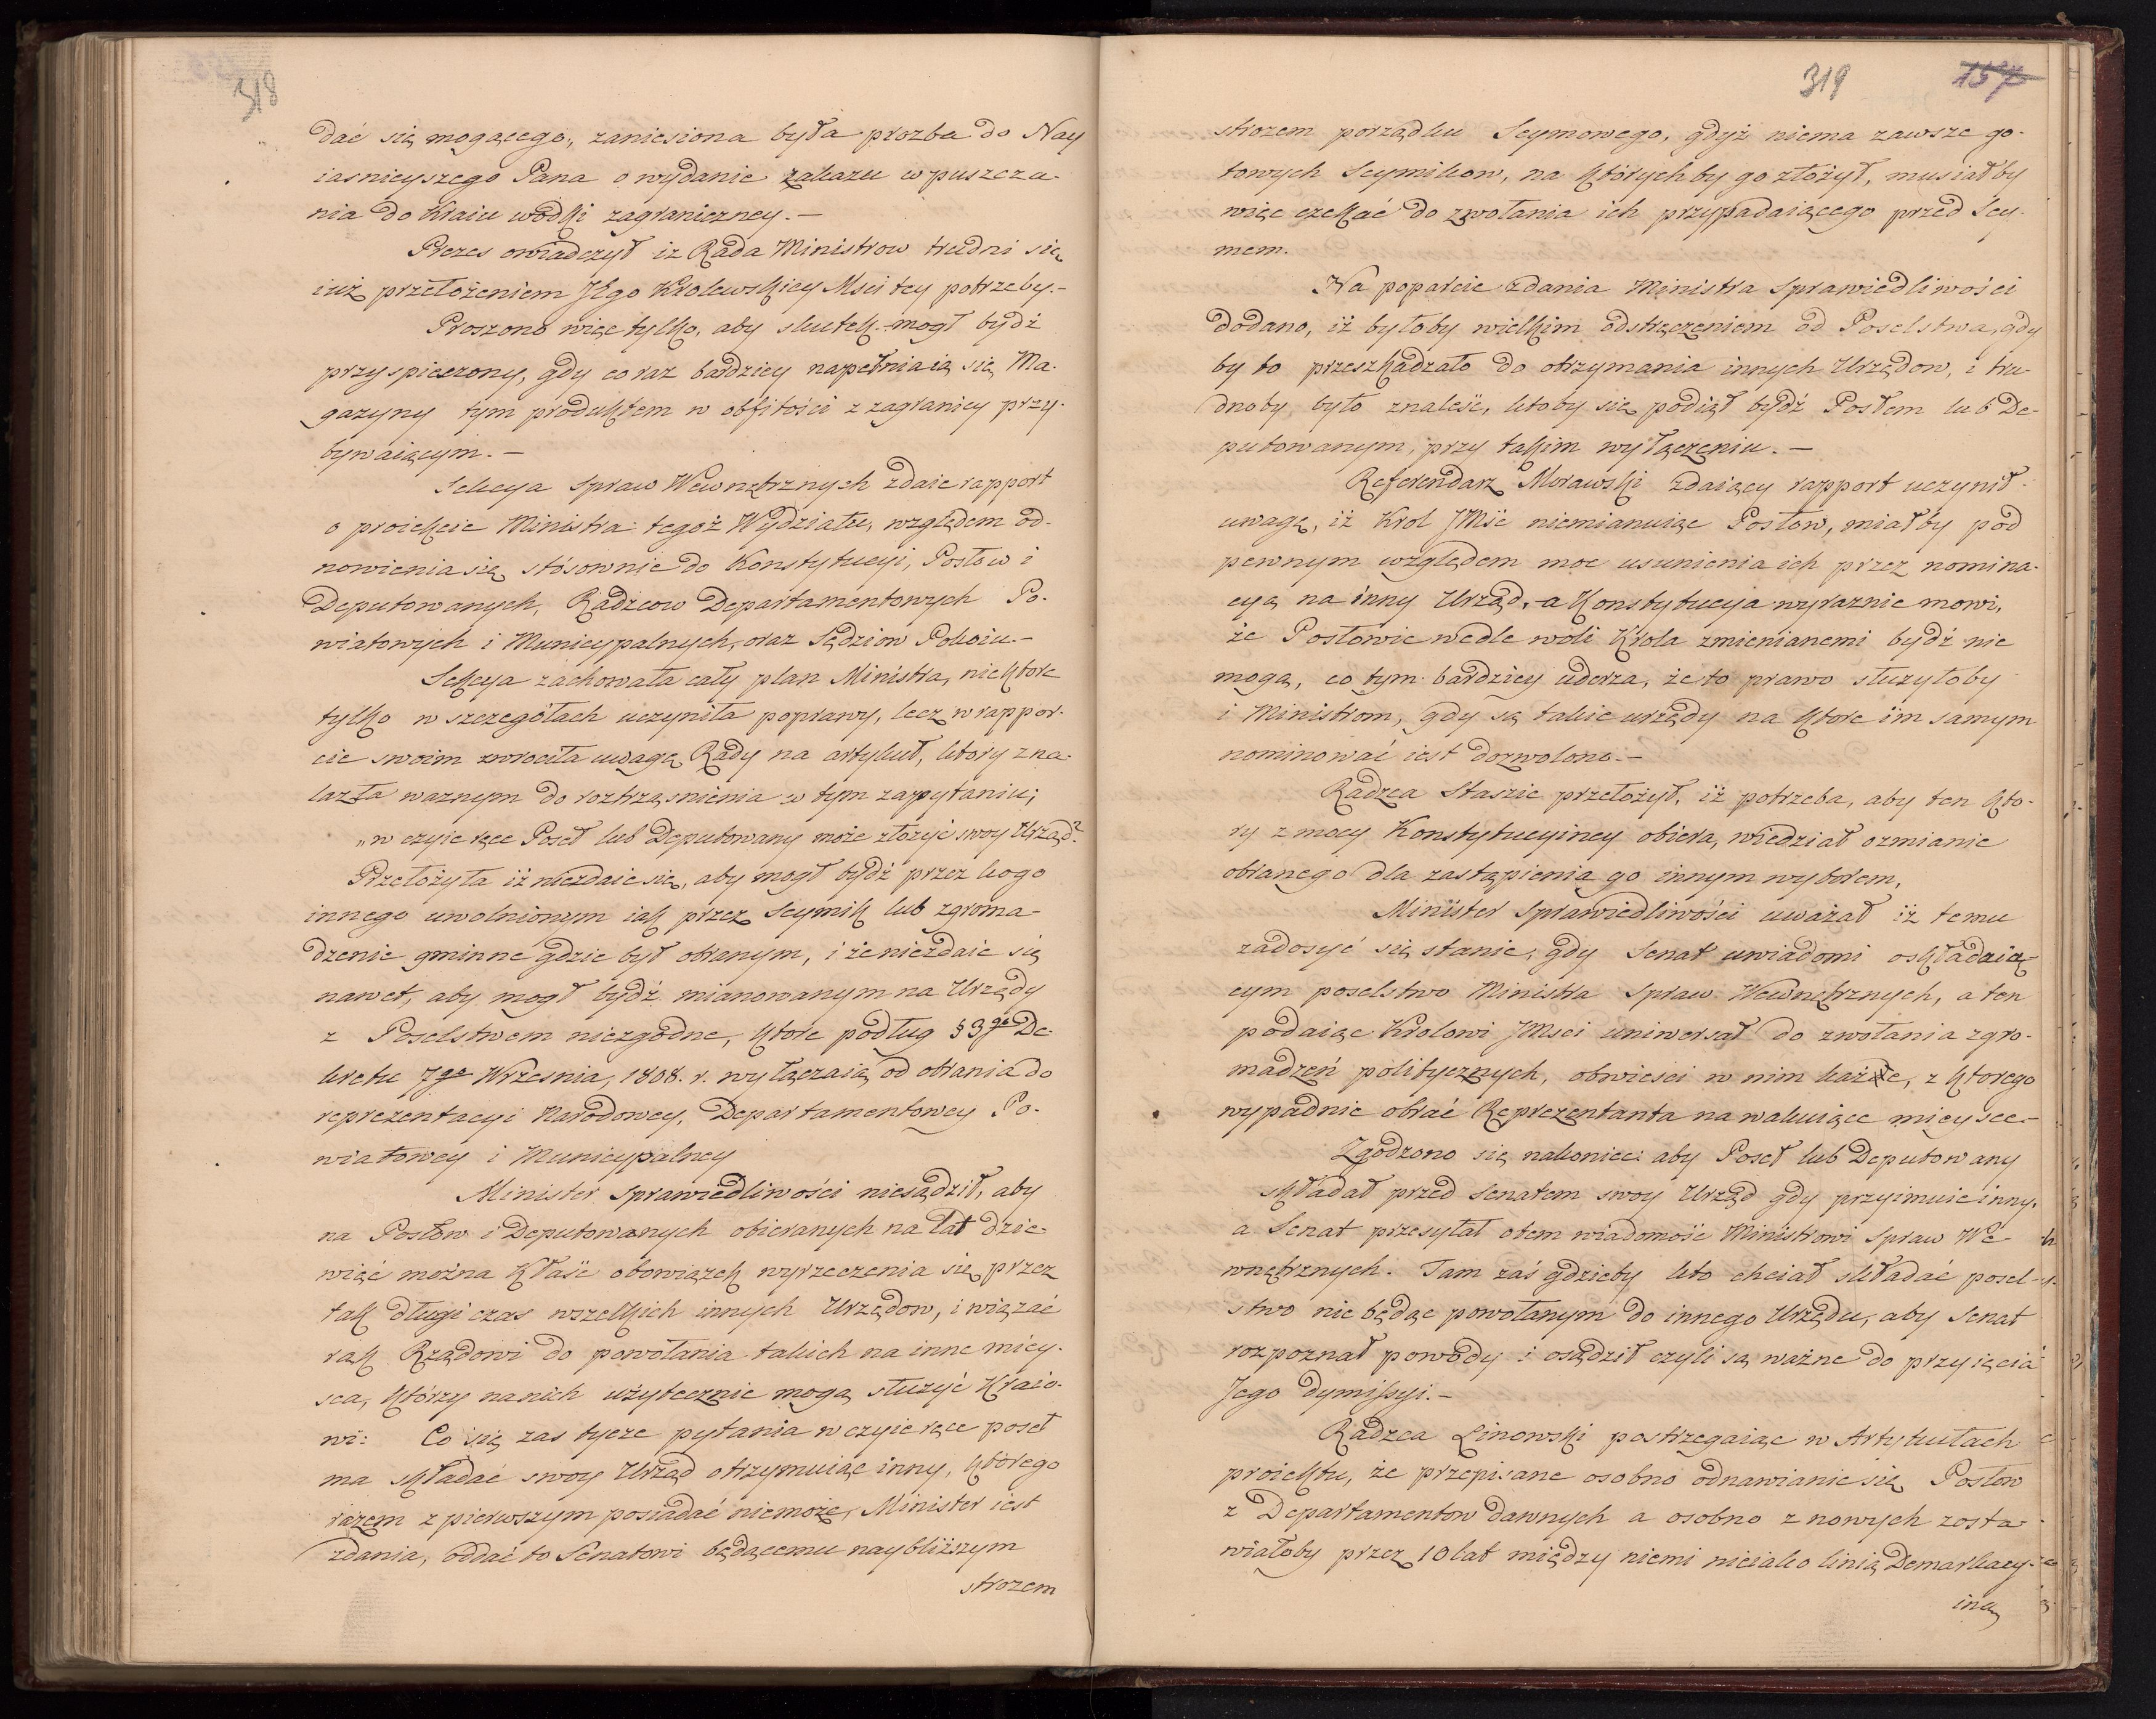 318
dać się mogącego, zaniesiona była prozba do Nay
iasnieyszego Pana o wydanie zakazu wpuszcza-
nia do Kraiu wódki zagraniczney.—
Prezes oswiadczył iż Rada Ministrow trudni się
iuż przełożeniem JEgo Krolewskiey Msci tey potrzeby.—
Proszono więc tylko, aby skutek mogł bydź
przyspieszony, gdy coraz bardziey napełniaią się Ma-
gazyny tym produktem w obfitości z zagranicy przy-
bywaiącym.—
Sekcya Spraw Wewnętrznych zdaie rapport
o proiekcie Ministra tegoż Wydziału, względem od-
nowienia się stósownie do Konstytucyi, Posłow i
Deputowanych, Radzcow Departamentowych Po-
wiatowych i Municypalnych, oraz Sędziow Pokoiu.—
Sekcya zachowała cały plan Ministra, niektore
tylko w szczegółach uczyniła poprawy, lecz w rappor-
cie swoim zwrociła uwagę Rady na artykuł, ktory zna-
lazła ważnym do roztrząsnienia w tym zapytaniu;
„w czyie ręce Poseł lub Deputowany może złożyć swoy Urząd?
Przełożyła iż niezdaie się, aby mogł bydź przez kogo
innego uwolnionym iak przez Seymik lub zgroma-
dzenie gminne gdzie był obranym, i że niezdaie się
nawet, aby mogł bydź mianowanym na Urzędy
z Poselstwem niezgodne, ktore podług §3go De-
kretu 7go Wrzesnia, 1808. r. wyłączaią od obrania do
reprezentacyi Narodowey, Departamentowey Po-
wiatowey i Municypalney
Minister Sprawiedliwości niesądził, aby
na Posłow i Deputowanych obieranych na lat dzie-
więć można kłaść obowiązek wyrzeczenia się przez
tak długi czas wszelkich innych Urzędow, i wiązać
rąk Rządowi do powołania takich na inne miey-
sca, którzy na nich użytecznie mogą służyć Kraio-
wi: Co się zas tycze pytania w czyie ręce poseł
ma składać swoy Urząd otrzymuiąc inny, którego
razem z pierwszym posiadać niemoże, Minister iest
zdania, oddać to Senatowi będącemu naybliższym
strozem
319 157
strozem porządku Seymowego, gdyż niema zawsze go-
towych Seymikow, na którychby go złożył, musiałby
więc czekać do zwołania ich przypadaiącego przed Sey-
mem.
Na poparcie zdania Ministra Sprawiedliwości
dodano, iż byłoby wielkim odstręczeniem od Poselstwa, gdy
by to przeszkadzało do otrzymania innych Urzędow, i tru-
dnoby było znaleść, ktoby się podiął bydź Posłem lub De-
putowanym, przy takim wyłączeniu.—
Referendarz Morawski zdaiący rapport uczynił
uwagę, iż Krol JMść niemianuiąc Posłow, miałby pod
pewnym względem moc usunienia ich przez nomina-
cyą na inny Urząd,—a Konstytucya wyraznie mowi,
że Posłowie wedle woli Krola zmienianemi bydź nie
mogą, co tym bardziey uderza, że to prawo służyłoby
i Ministrom, gdy są takie urzędy na ktore im samym
nominować iest dozwolono.—
Radzca Staszic przełożył, iż potrzeba, aby ten kto-
ry z mocy Konstytucyiney obiera, wiedział o zmianie
obranego dla zastąpienia go innym wyborem,
Minister Sprawiedliwości uważał iż temu
zadosyć się stanie, gdy Senat uwiadomi o składaią-
cym poselstwo Ministra Spraw Wewnętrznych, a ten
podaiąc Krolowi JMsci uniwersał do zwołania zgro-
madzeń politycznych, obwiesci w nim każde, z ktorego
wypadnie obrać Reprezentanta na wakuiące mieysce.—
Zgodzono się nakoniec: aby Poseł lub Deputowany
składał przed Senatem swoy Urząd gdy przyimuie inny,
a Senat przesyłał o tem wiadomość Ministrowi Spraw We-
wnętrznych. Tam zaś gdzieby kto chciał składać posel-
stwo nie będąc powołanym do innego Urzędu, aby Senat
rozpoznał powody i osądził czyli są ważne do przyięcia
Jego dymissyi.—
Radzca Linowski postrzegaiąc w Artykułach
proiektu, że przepisane osobno odnawianie się Posłow
z Departamentow dawnych a osobno z nowych zosta-
wiałoby przez 10 lat między niemi nieiako linią Demarkacy-
iną